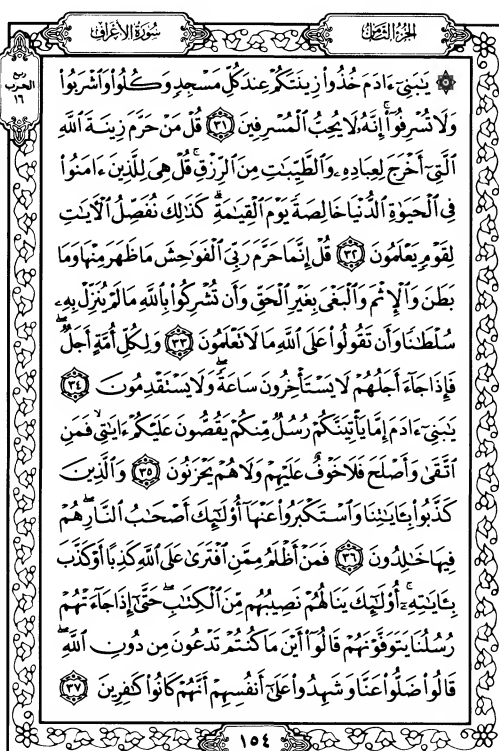 سُورَةُ الأَعْرَافِ
الجُزْءُ الثَّامِنُ
ربع
الحزب
١٦
۞ يَٰبَنِىٓ ءَادَمَ خُذُوا۟ زِينَتَكُمْ عِندَ كُلِّ مَسْجِدٍ وَكُلُوا۟ وَٱشْرَبُوا۟
وَلَا تُسْرِفُوٓا۟ ۚ إِنَّهُۥ لَا يُحِبُّ ٱلْمُسْرِفِينَ ﴿٣١﴾ قُلْ مَنْ حَرَّمَ زِينَةَ ٱللَّهِ
ٱلَّتِىٓ أَخْرَجَ لِعِبَادِهِۦ وَٱلطَّيِّبَٰتِ مِنَ ٱلرِّزْقِ ۚ قُلْ هِىَ لِلَّذِينَ ءَامَنُوا۟
فِى ٱلْحَيَوٰةِ ٱلدُّنْيَا خَالِصَةً يَوْمَ ٱلْقِيَٰمَةِ ۗ كَذَٰلِكَ نُفَصِّلُ ٱلْءَايَٰتِ
لِقَوْمٍ يَعْلَمُونَ ﴿٣٢﴾ قُلْ إِنَّمَا حَرَّمَ رَبِّىَ ٱلْفَوَٰحِشَ مَا ظَهَرَ مِنْهَا وَمَا
بَطَنَ وَٱلْإِثْمَ وَٱلْبَغْىَ بِغَيْرِ ٱلْحَقِّ وَأَن تُشْرِكُوا۟ بِٱللَّهِ مَا لَمْ يُنَزِّلْ بِهِۦ
سُلْطَٰنًا وَأَن تَقُولُوا۟ عَلَى ٱللَّهِ مَا لَا تَعْلَمُونَ ﴿٣٣﴾ وَلِكُلِّ أُمَّةٍ أَجَلٌ ۖ
فَإِذَا جَآءَ أَجَلُهُمْ لَا يَسْتَأْخِرُونَ سَاعَةً ۖ وَلَا يَسْتَقْدِمُونَ ﴿٣٤﴾
يَٰبَنِىٓ ءَادَمَ إِمَّا يَأْتِيَنَّكُمْ رُسُلٌ مِّنكُمْ يَقُصُّونَ عَلَيْكُمْ ءَايَٰتِى ۙ فَمَنِ
ٱتَّقَىٰ وَأَصْلَحَ فَلَا خَوْفٌ عَلَيْهِمْ وَلَا هُمْ يَحْزَنُونَ ﴿٣٥﴾ وَٱلَّذِينَ
كَذَّبُوا۟ بِـَٔايَٰتِنَا وَٱسْتَكْبَرُوا۟ عَنْهَآ أُو۟لَٰٓئِكَ أَصْحَٰبُ ٱلنَّارِ ۖ هُمْ
فِيهَا خَٰلِدُونَ ﴿٣٦﴾ فَمَنْ أَظْلَمُ مِمَّنِ ٱفْتَرَىٰ عَلَى ٱللَّهِ كَذِبًا أَوْ كَذَّبَ
بِـَٔايَٰتِهِۦٓ ۚ أُو۟لَٰٓئِكَ يَنَالُهُمْ نَصِيبُهُم مِّنَ ٱلْكِتَٰبِ ۖ حَتَّىٰٓ إِذَا جَآءَتْهُمْ
رُسُلُنَا يَتَوَفَّوْنَهُمْ قَالُوٓا۟ أَيْنَ مَا كُنتُمْ تَدْعُونَ مِن دُونِ ٱللَّهِ ۖ
قَالُوا۟ ضَلُّوا۟ عَنَّا وَشَهِدُوا۟ عَلَىٰٓ أَنفُسِهِمْ أَنَّهُمْ كَانُوا۟ كَٰفِرِينَ ﴿٣٧﴾
١٥٤